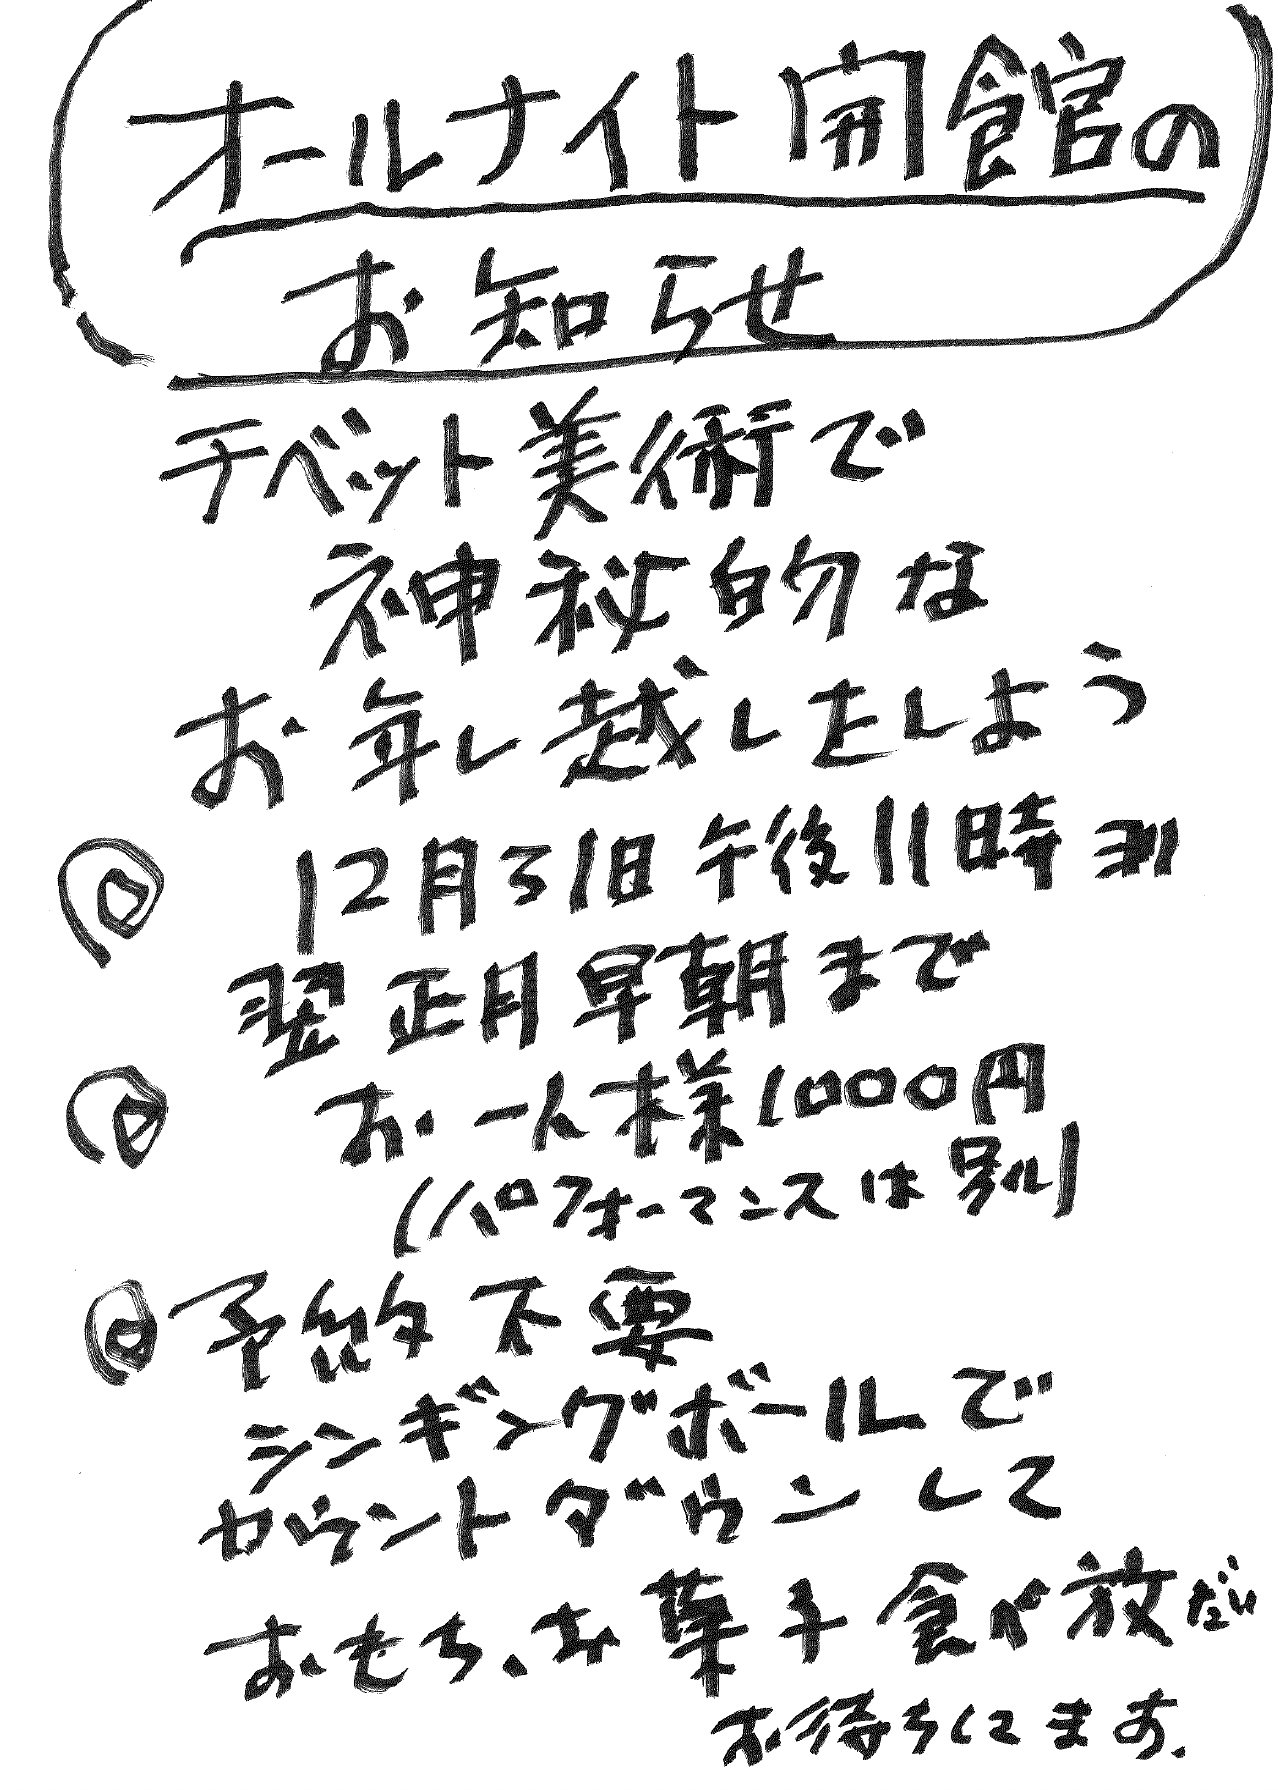 オールナイト開館の
お知らせ
チベット美術で
神秘的な
お年し越しをしよう
◎ 12月31日午後11時ヨリ
翌正月早朝まで
◎ お一人様1000円
(パフォーマンスは別)
◎予約不要
シンギングボールで
カウントダウンして
おもち、お菓子食べ放だい
お待ちしてます.